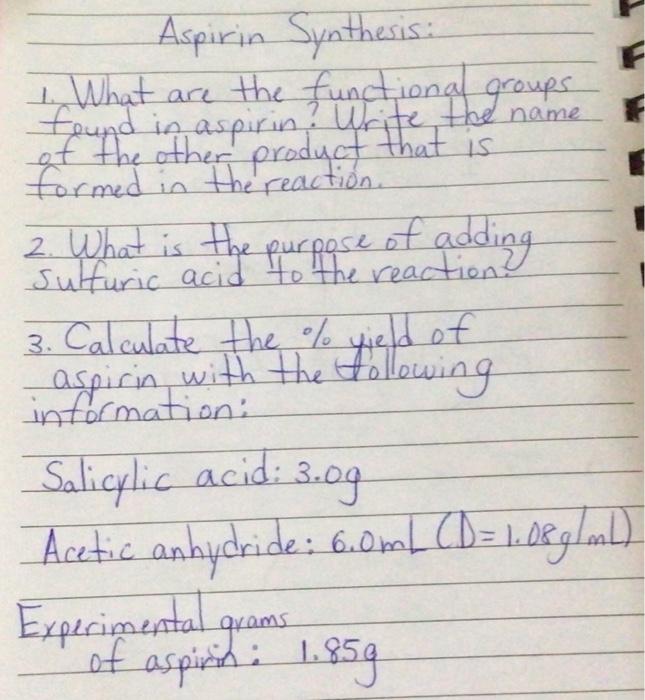 Aspirin Synthesis:
1. What are the functional groups
found in aspirin? Write the name
of the other product that is
formed in the reaction.
2. What is the purpose of adding
sulfuric acid to the reaction?
3. Calculate the % yield of
aspirin with the following
information:
Salicylic acid: 3.0g
Acetic anhydride: 6.0mL (D=1.08g/ml)
Experimental grams
of aspirin: 1.85g